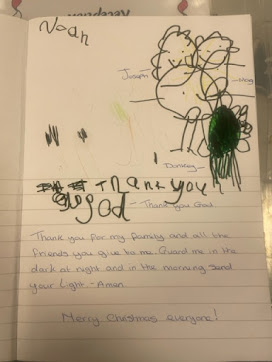 Noah
Joseph
Mary
Donkey
Thank you
god
Thank you God
Thank you for my family and all the
friends you give to me. Guard me in the
dark at night and in the morning send
your Light. - Amen
Merry Christmas everyone!